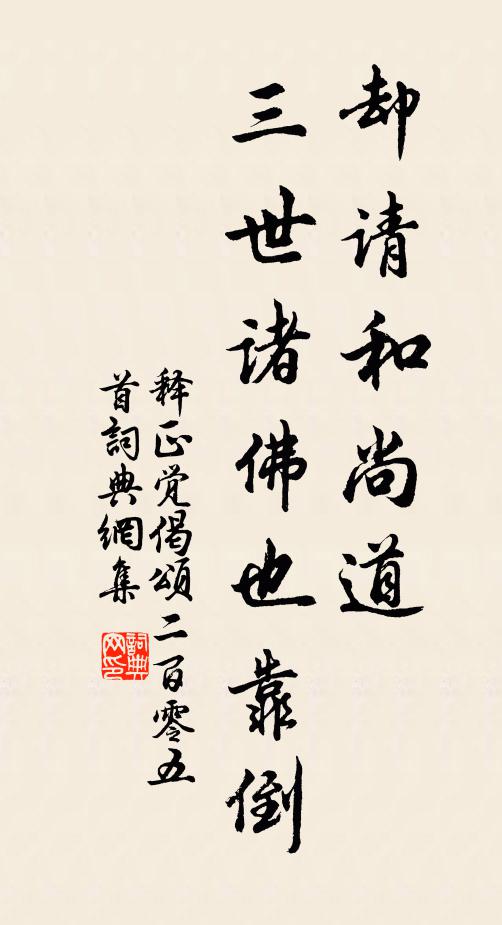 却请和尚道
三世诸佛也靠倒
释正觉偈頌二百零五
首詞典網集
詞典
网印